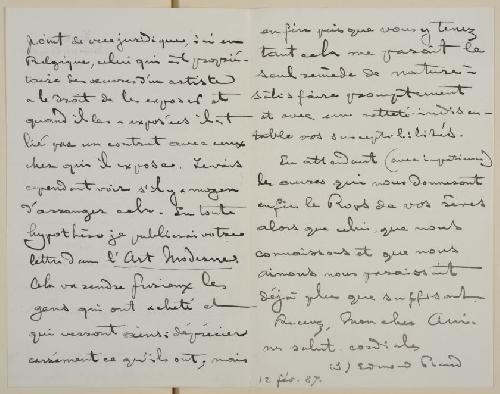 point de vue juridique, ici en
Belgique, celui qui est proprié-
taire des œuvres d'un artiste
a le droit de les exposer et
quand il les a exposées il est
lié par un contrat avec ceux
chez qui il expose. Je vais
cependant voir s'il y a moyen
d'arranger cela. En toute
hypothèse je publierai votre
lettre dans l'Art Moderne
Cela va rendre furieux les
gens qui ont acheté et
qui verront ainsi déprécier
carrément ce qu'ils ont, mais
enfin puisque vous y tenez
tant cela me paraît le
seul remède de nature à
satisfaire promptement
et avec une netteté indiscu-
table vos susceptibilités.
En attendant (avec impatience)
les œuvres qui nous donneront
enfin le Rops de vos rêves
alors que celui, que nous
connaissons et que nous
aimons nous paraissait
déjà plus que suffisant
Recevez, Mon cher Ami
un salut cordial
(s) Edmond Picard
12 fév. 87.